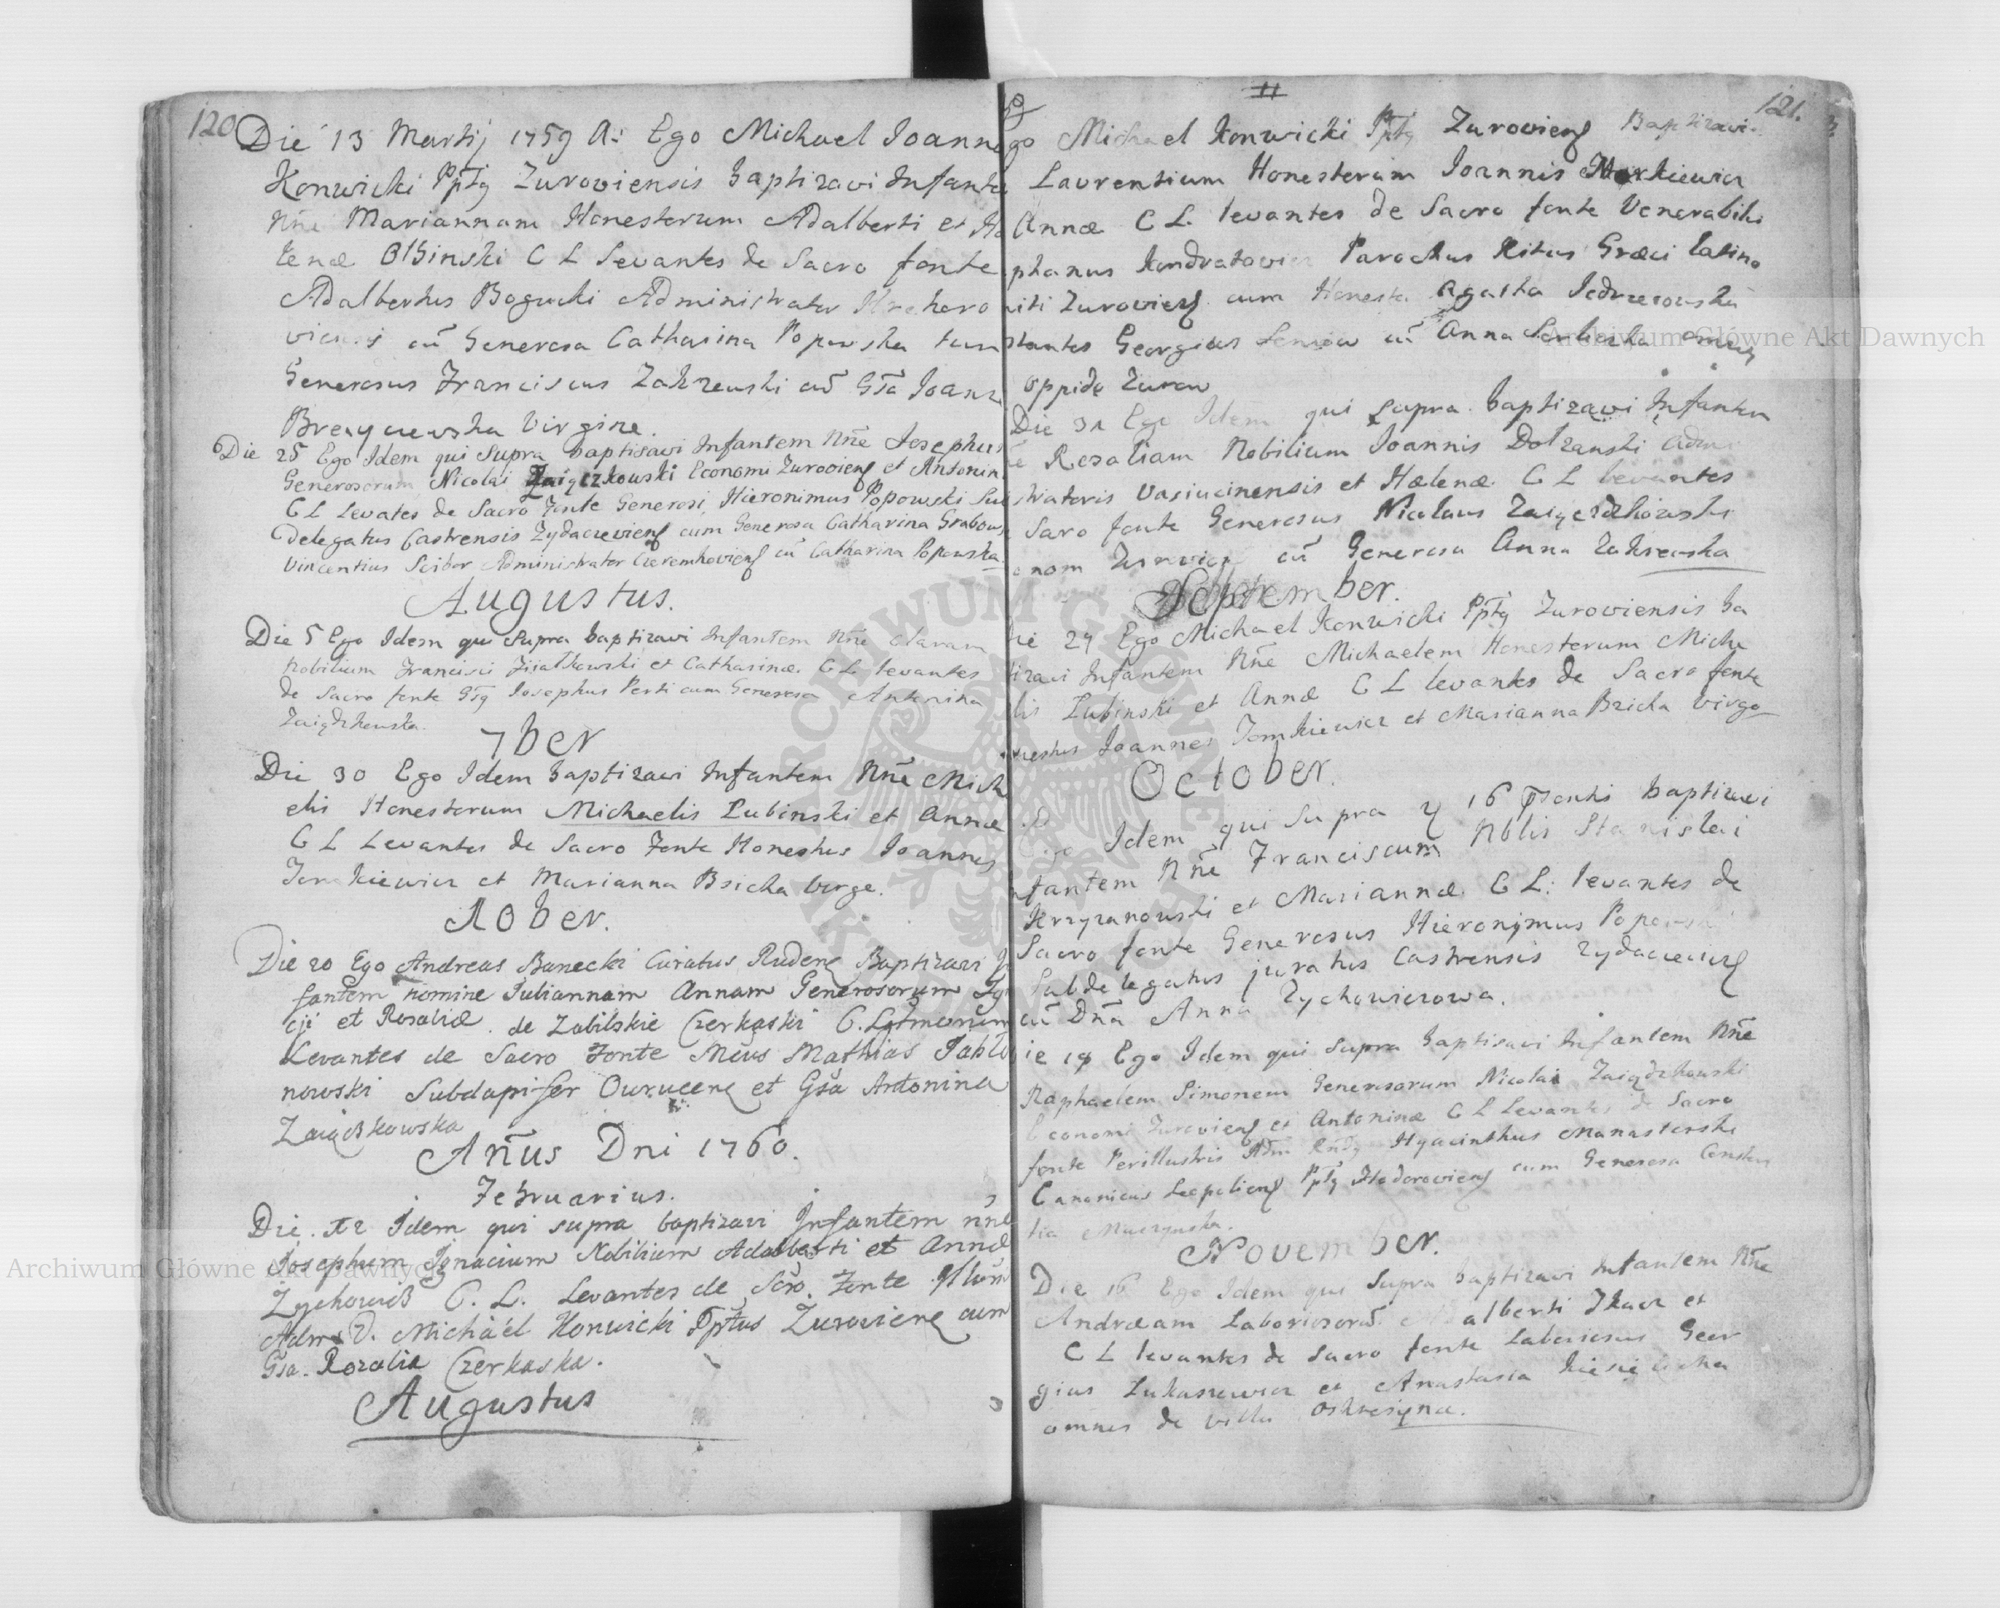 120
Die 13 Martij 1759 A: Ego Michael Joann
Konwicki Pptg Zuroviensis baptizavi Infante
Nñe Mariannam Honestorum Adalberti et
lenæ Olbinski C L Levantes de Sacro fonte
Adalbertus Bogucki Administrator
viensis cũ Generosa Catharina Popowska tum
Generosus Franciscus Zakrzewski cũ Gsa Joann
virgine.
Die 25 Ego Idem qui Supra baptisavi Infantem Nñe Josephu
Generosorum Nicolai Zaigczkowski Economi Zuroviens et Antonin
C L Levates de Sacro Fonte Generosi, Hieronimus Popowski Su
delegatus Castrensis Zydaczeviens cum Generosa Catharina Grabow
Vincentius Scibor Administrator Czeremhoviens cũ Catharina Popowska
Augustus.
Die 5 Ego Idem qui Supra baptizavi Infantem Nñe Claram
Nobilium Francisci Fijalkowski et Catharinæ C L levantes
de Sacro fonte Josephus Perti cum Generosa Antonina
7ber
Die 30 Ego Idem baptizavi Infantem Nñe Mich
elis Honestorum Michaelis Lubinski et Annæ
C L Levantes de Sacro Fonte Honestus Joannes
et Marianna Bricka virgo.
Die 20 Ego Andreas Banecki Curatus Rudens Baptizavi
fantem nomine Juliannam Annam Generosorum Ign
cji et Rosaliæ de Zabilskie Czerkaski C. Ltmorum
Levantes de Sacro Fonte Mathias Jablo
nowski Subdapifer Owrucens et Gsa Antonina
Anũs Dni 1760.
Februarius.
Die 12 Idem qui supra baptizavi Infantem nne
Josephum Ignacium Nobilium Adalberti et Annæ
C. L. Levantes de Scro. Fonte Illum
Adm D. Michaël Konwicki Pptus Zuroviens cum
Gsa. Rozalia Czerkaska.
Augustus
11
121.
go Michael Konwicki Pptg Zuroviens Baptizavi
Laurentium Honestorum Joannis
Annæ C L. levantes de Sacro fonte Venerabilis
phanus Kondratowicz Parochus Ritus Græci latino
niti Zuroviens cum Honesta Agatha
stantes Georgius cũ Anna omnes
oppido Zurow
Die 31 Ego Idem qui supra baptizavi Infantem
Rosaliam Nobilium Joannis Dolzanski Admi
stratoris Vasiucinensis et Hælenæ C L levantes
Sacro fonte Generosus Nicolaus
cũ Generosa Anna Zakrzewska
September.
ie 29 Ego Michael Konwicki Pptg Zuroviensis ba
tizavi Infantem Nñe Michaelem Honestorum Micha
lis Lubinski et Annæ C L levantes de Sacro fonte
nestus Joannes Tomkiewicz et Marianna Bricka virgo
October.
Idem qui supra 16 baptizavi
fantem Nñe Franciscum Nblis Stanislai
Krzyzanowski et Mariannæ C L: levantes de
Sacro fonte Generosus Hieronymus Popowski
Subdelegatus juratus Castrensis Zydaczeviens
cũ Dña Anna Zychowiczowa.
ie 19 Ego Idem qui supra baptisavi Infantem Nñe
Raphaelem Simonem Generosorum Nicolai
Economi Zuroviens et Antoninæ C L Levantes de Sacro
fonte Perillustris Adm Hyacinthus Manasterski
Canonicus Leopoliens Pptg Hodoroviens cum Generosa Constan
tia
November.
Die 16 Ego Idem qui supra baptizavi Infantem Nñe
Andræam Laboriosorũ Adalberti Tkacz et
C L levantes de Sacro fonte Laboriosus Geor
gius Lukasiewicz et Anastasia
omnes de villa
Archiwum Główne Akt Dawnych
Archiwum Główne Akt Dawnych
ARCHIWUM GŁÓWNE AKT DAWNYCH